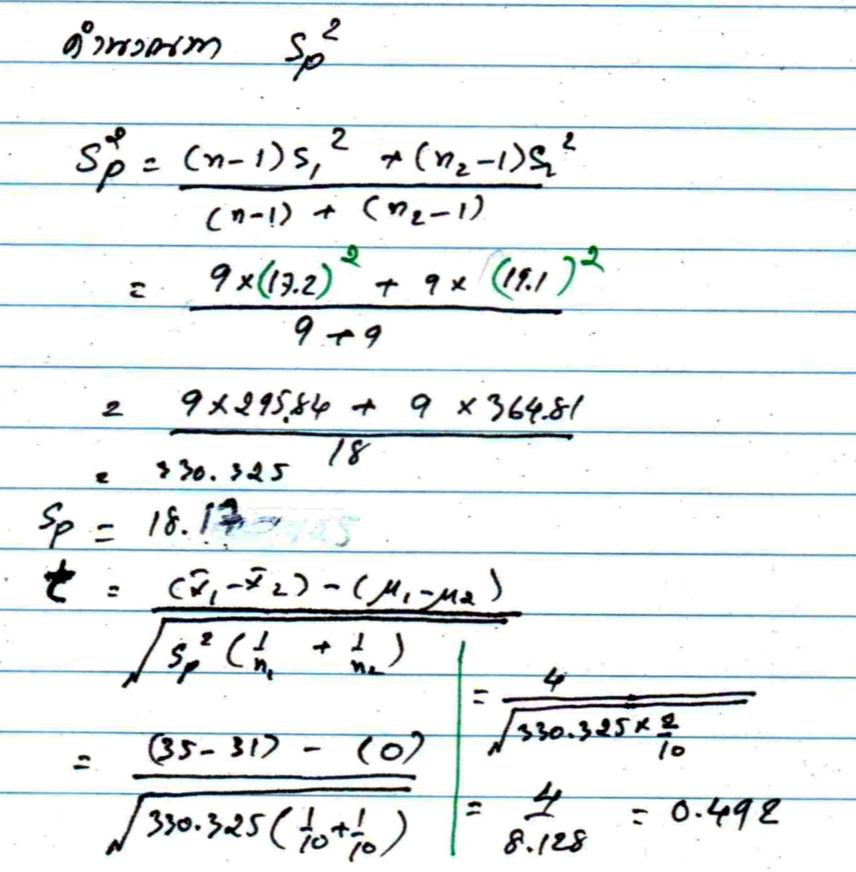 คำนวณหา Sp²
Sp² = (n-1)S₁² + (n₂-1)S₂²
(n-1) + (n₂-1)
= 9×(17.2)² + 9× (19.1)²
9+9
= 9×295.84 + 9 ×364.81
18
= 330.325
Sp = 18.17
t = (x̄₁-x̄₂)-(μ₁-μ₂)
√Sp²(1/n₁ + 1/n₂)
= (35-31) - (0)
√330.325(1/10+1/10)
= 4
√330.325×2/10
= 4/8.128 = 0.492